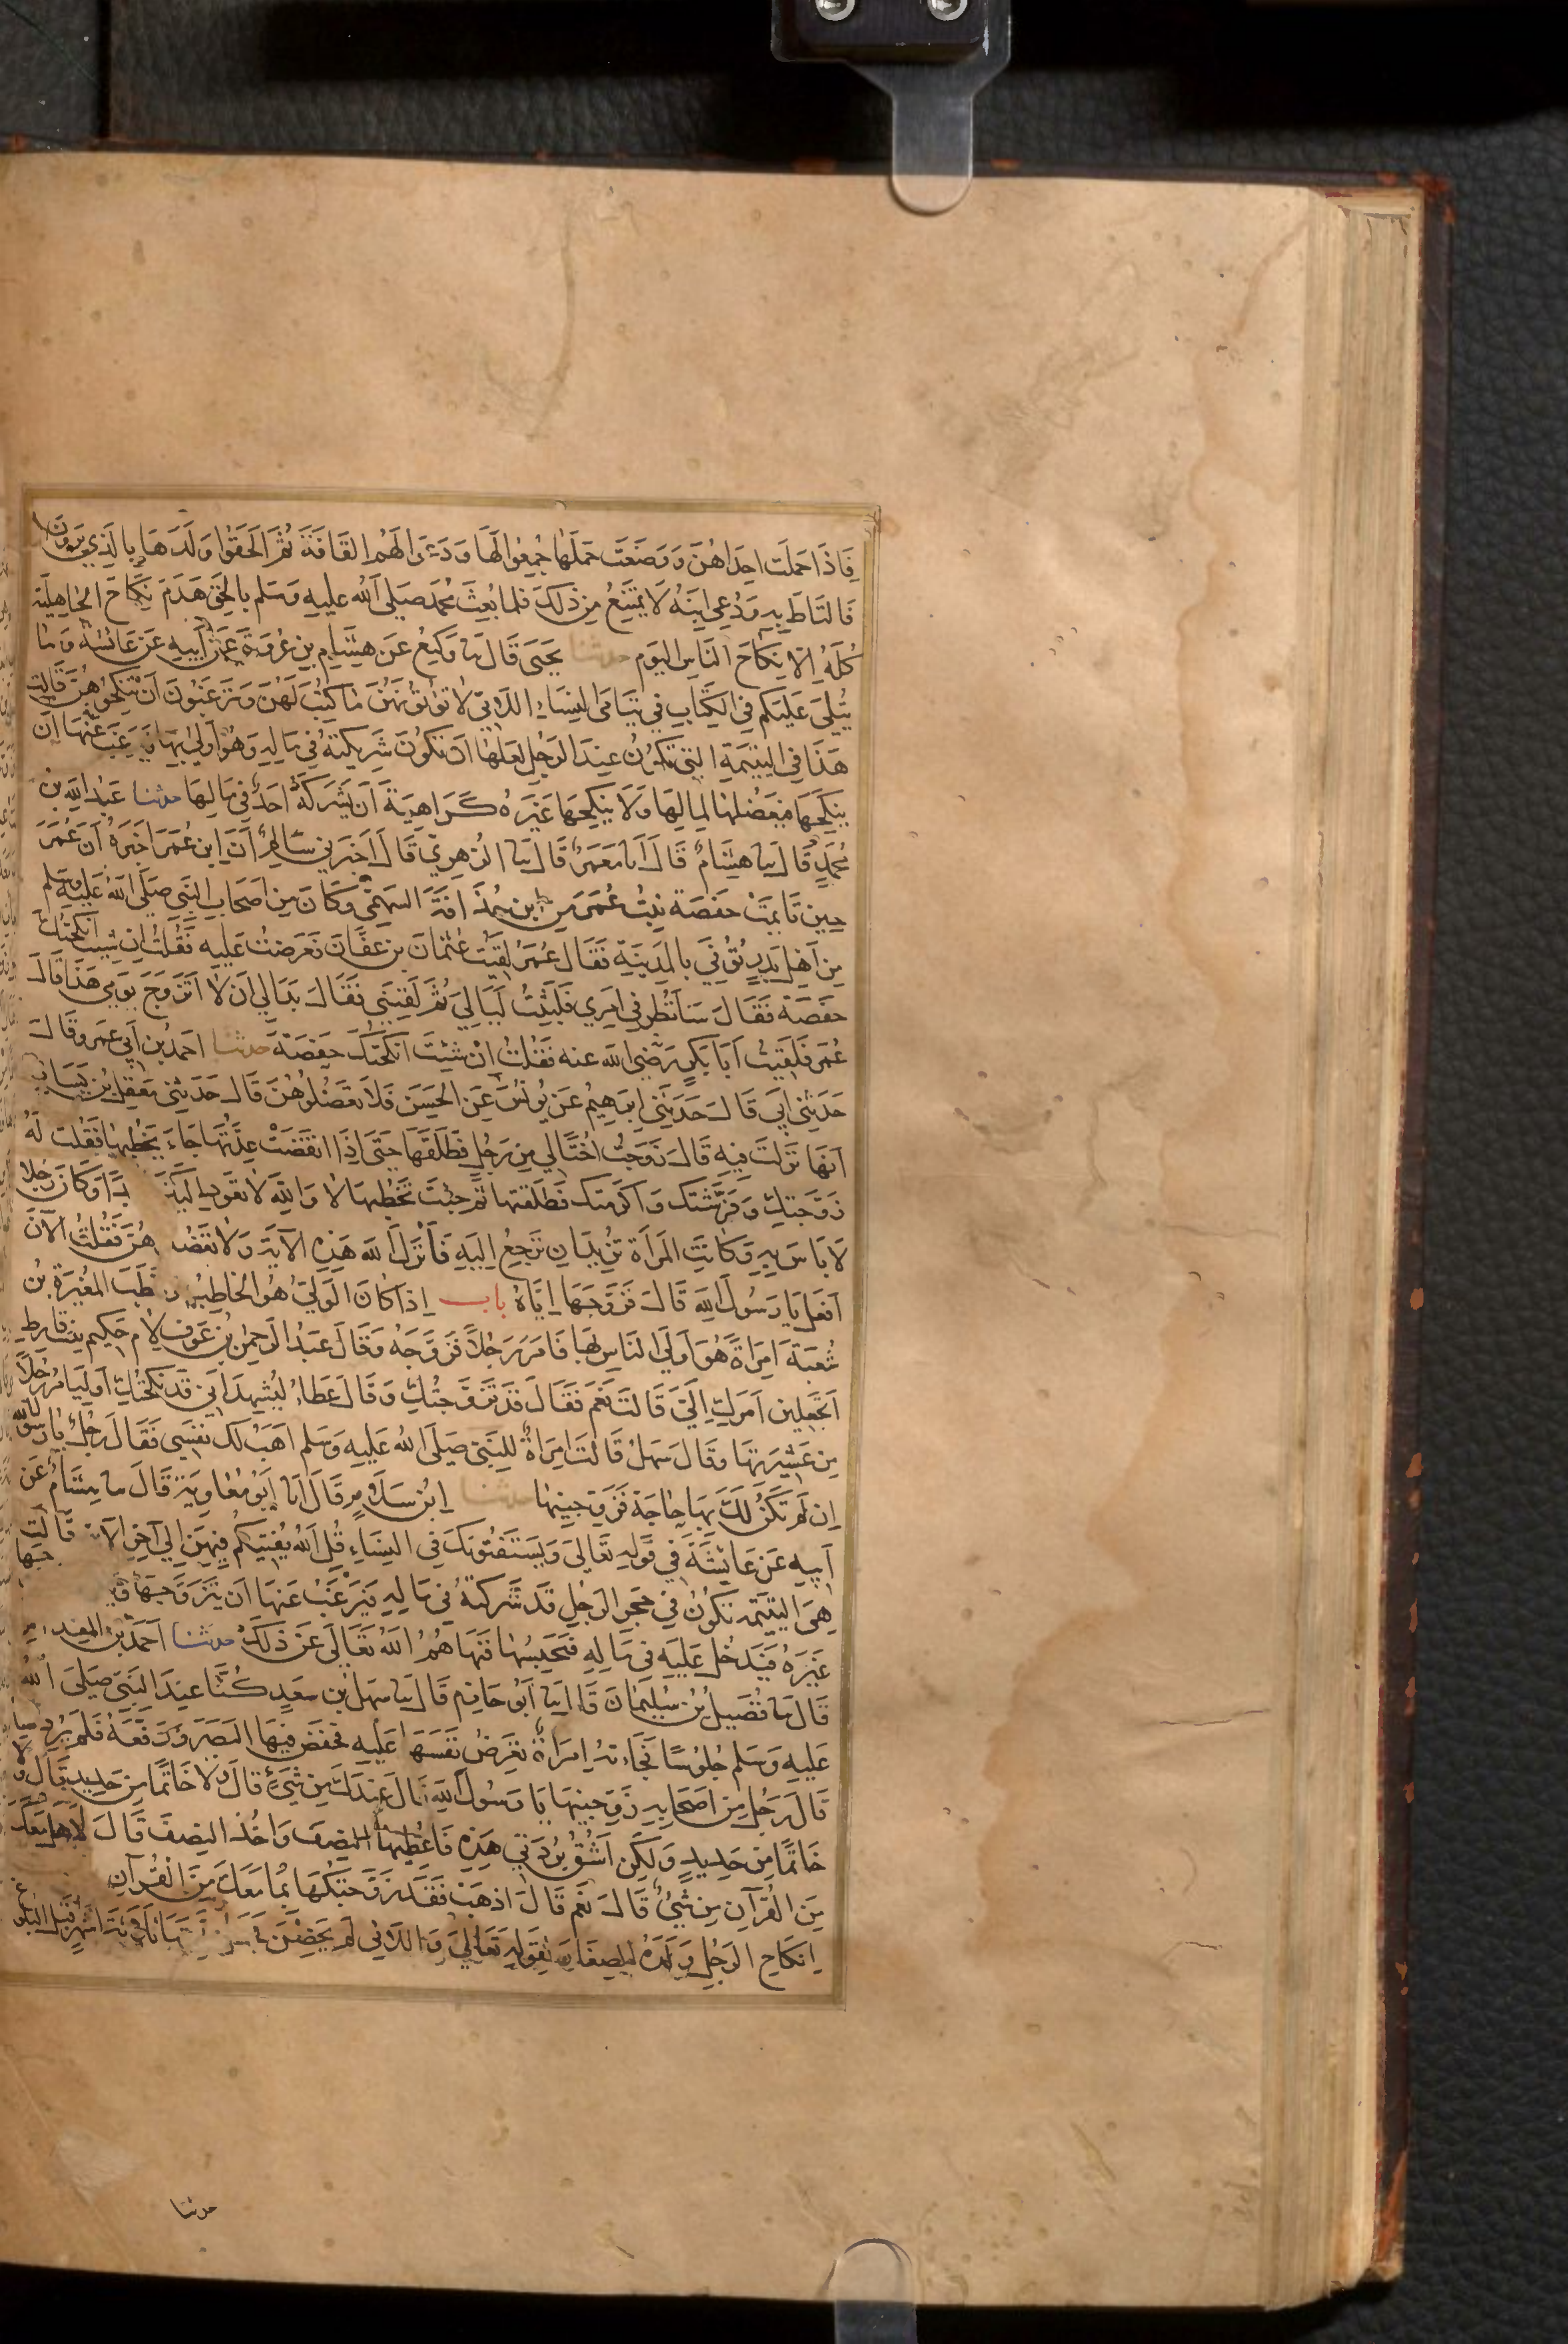 فَاذَا حَمَلَت احِدَاهُنَّ وَوَضَعَت حَملَهَا جُمِعُوا لَهَا وَدَعَوا لَهُم القَافَةَ ثُمَّ الحَقُوا وَلَدَهَا بِالَّذِي يَرَونَ
فَالتَاطَ بِهِ وَدُعِي ابنَهُ لَا يَمتَنِعُ مِن ذَلِكَ فلما بُعِثَ مُحَمد صَلى الله عليه وَسَلم بِالحَقِّ هَدَمَ نِكَاحَ الجَاهِلِيّة
كُلَّهُ اِلّا نِكَاحَ النَاسِ اليَوم حدثنا يَحيَى قَالَ نا وَكِيعُ عَن هِشَامِ بنِ عُروَةَ عَن اَبِيهِ عَن عَائِشَة وَمَا
يُتلَى عَلَيكُم فِي الكِتَابِ فِي يَتَامَى النِسَاءِ اللَّاتِي لَا تؤتُونَهُنَّ مَا كُتِبَ لَهُنَّ وَتَرغَبُونَ اَن تَنكِحُوهُنَّ قَالَت
هَذَا فِي اليَتِيمَةِ الَّتِي تَكُونُ عِندَ الرَجُلِ لَعَلَّهَا اَن تَكُونَ شَرِيكَتَهُ فِي مَالِهِ وَهُوَ اَولَى بِهَا فَيَرغَبُ عَنهَا اَن
يَنكِحَهَا فَيَعضُلهَا لِمَالِهَا وَلَا يُنكِحَهَا غَيرَهُ كَرَاهِيَةَ اَن يَشرَكَهُ اَحَدٌ فِي مَالِهَا حدثنا عَبدُ الله بن
مُحَمَّدٍ قَالَ نا هِشَامٌ قَالَ اَنا مَعمَرٌ قَالَ نا الزهرِي قَالَ اَخبَرَنِي سَالِمٌ اَنَّ ابن عُمَرَ اَخبَرَهُ اَنَّ عُمَرَ
حِينَ تَايَمَت حَفصَة بِنتُ عُمَرَ مِن ابن حُذَافَةَ السَهمِيّ وَكَانَ مِن اَصحَابِ النَبِي صَلَى اللهُ عَلَيهِ وَسَلم
مِن اَهلِ بَدرٍ تُوُفِّي بِالمَدِينَةِ فَقَال عُمَرُ لَقِيتُ عُثمَانَ بن عَفَّانَ فَعَرَضتُ عَلَيهِ فَقُلتُ اِن شِئتَ اَنكَحتُكَ
حَفصَةَ فَقَالَ سَاَنظُر فِي اَمرِي فَلَبِثتُ لَيَالِيَ ثُمَّ لَقِيَنِي فَقَالَ بَدَا لِي اَن لَا اَتَزَوَّجَ يَومِي هَذَا قَالَ
عُمَر فَلَقِيتُ اَبَا بَكرٍ رَضي الله عنه فَقُلتُ اِن شِئتَ اَنكَحتُكَ حَفصَةَ حدثنا احمَدُ بن اَبِي عَمرو قَالَ
حَدَثَنِي اَبِي قَالَ حَدَثَنِي اِبرَهِيمُ عَن يُونُسَ عَنِ الحَسَنِ فَلَا تَعضُلُوهُنَّ قَالَ حَدَثَنِي مَعقِل بن يَسَارٍ
اَنَهَا نَزَلَت فِيهِ قَالَ زَوَّجتُ اُختًا لِي مِن رَجُلٍ فَطَلَّقَهَا حَتَى اِذَا انقَضَت عِدَّتُهَا جَاءَ يَخطُبُهَا فَقُلت لَهُ
زَوَّجتكَ وَفَرَشتكَ وَاَكرَمتك فَطَلَقتهَا ثُمَّ جِئتَ تَخطُبهَا لَا وَاللهِ لَا تعُود اِلَيكَ اَبَدًا وَكَانَ رَجُلا
لَا بَاسَ بِهِ وَكَانَت المَرأة تُرِيدُ ان تَرجِعَ اِلَيهِ فَاَنزَلَ الله هَذِهِ الآيَة وَلَا تَعضُلُوهُنَّ فَقُلتُ الآنَ
اَفعَل يَا رَسُولَ اللهِ قَالَ فَزَوَّجَهَا اِيَّاهُ باب اِذَا كَانَ الوَلِيُّ هُوَ الخَاطِبُ وَخَطَبَ المُغِيرَةُ بنُ
شُعبَةَ امرَاةً هُوَ اَولَى النَاسِ بِهَا فَامَرَ رَجُلاً فَزَوَّجَهُ وَقَالَ عَبدُ الرَحمنِ بنُ عَوفٍ لِاُم حَكِيم بِنتِ قَارِظٍ
اَتَجعَلِين اَمرَكِ اِلَيَّ قَالَت نَعَم فَقَالَ قَد تَزَوَّجتُكِ وَقَالَ عَطَاءٌ لِيُشهِد اَنِّي قَد نَكَحتُكِ اَو لِيَامُر رَجُلاً
مِن عَشِيرَتِهَا وَقَالَ سَهلٌ قَالَتِ امرَاَةٌ لِلنَبِيّ صَلَى اللهُ عَلَيهِ وَسَلم اَهَبُ لَكَ نَفسِي فَقَالَ رَجُلٌ يَا رَسُولَ الله
اِن لَم تَكُن لَكَ بِهَا حَاجَة فَزَوِّجنِيهَا حدثنا ابنُ سَلَامٍ قَالَ اَنا اَبُو مُعَاوِيَة قَالَ نا هِشَامٌ عَن
اَبِيهِ عَن عَائِشَةَ فِي قَولِهِ تَعَالَى وَيَستَفتُونَكَ فِي النِسَاءِ قُلِ اللهُ يُفتِيكُم فِيهِنَّ اِلَى آخِرِ الآيَة قَالَت
هِيَ اليَتِيمَة تَكُونُ فِي حَجرِ الرَجُلِ قَد شَرِكَتهُ فِي مَالِهِ فَيَرغَبُ عَنهَا اَن يَتَزَوَّجَهَا
غَيرَهُ فَيَدخُل عَلَيهِ فِي مَالِهِ فَيَحبِسُهَا فَنَهَاهُمُ اللهُ تَعَالَى عَن ذَلِكَ حدثنا اَحمَدُ بن المقدام
قَالَ نا فُضَيلُ بنُ سُلَيمَانَ قَالَ نا اَبُو حَازِم قَالَ نا سَهلُ بن سَعدٍ كُنَّا عِندَ النَبِيّ صَلَى اللهُ
عَلَيهِ وَسَلم جُلُوسًا فَجَاءتهُ امرَاةٌ تَعرِضُ نَفسَهَا عَلَيهِ فَخَفَضَ فِيهَا البَصَرَ وَرَفَعَهُ فَلَم يُرِدهَا
قَالَ رَجُل مِن اَصحَابِهِ زَوِّجنِيهَا يَا رَسُولَ اللهِ قَالَ عِندَكَ مِن شَيءٍ قَالَ وَلَا خَاتَمًا مِن حَدِيدٍ قَالَ وَلَا
خَاتَمًا مِن حَدِيدٍ وَلَكِن اَشُقُّ بُردَتِي هَذِهِ فَاُعطِيهَا النِصفَ وَاخُذ النِصفَ قَالَ لَا هَل مَعَكَ
مِنَ القُرآنِ مِن شَيءٍ قَالَ نَعَم قَالَ اذهَب فَقَد زَوَّجتُكَهَا بِمَا مَعَكَ مِنَ القُرآنِ
اِنكَاحِ الرَجُلِ وَلَدَهُ الصِغَارَ لِقَولِهِ تَعَالَى وَاللَّائِي لَم يَحِضنَ فَجَعَلَ عِدَّتَهَا ثَلَاثَة اَشهُر قَبلَ البُلُوغ
حدثنا